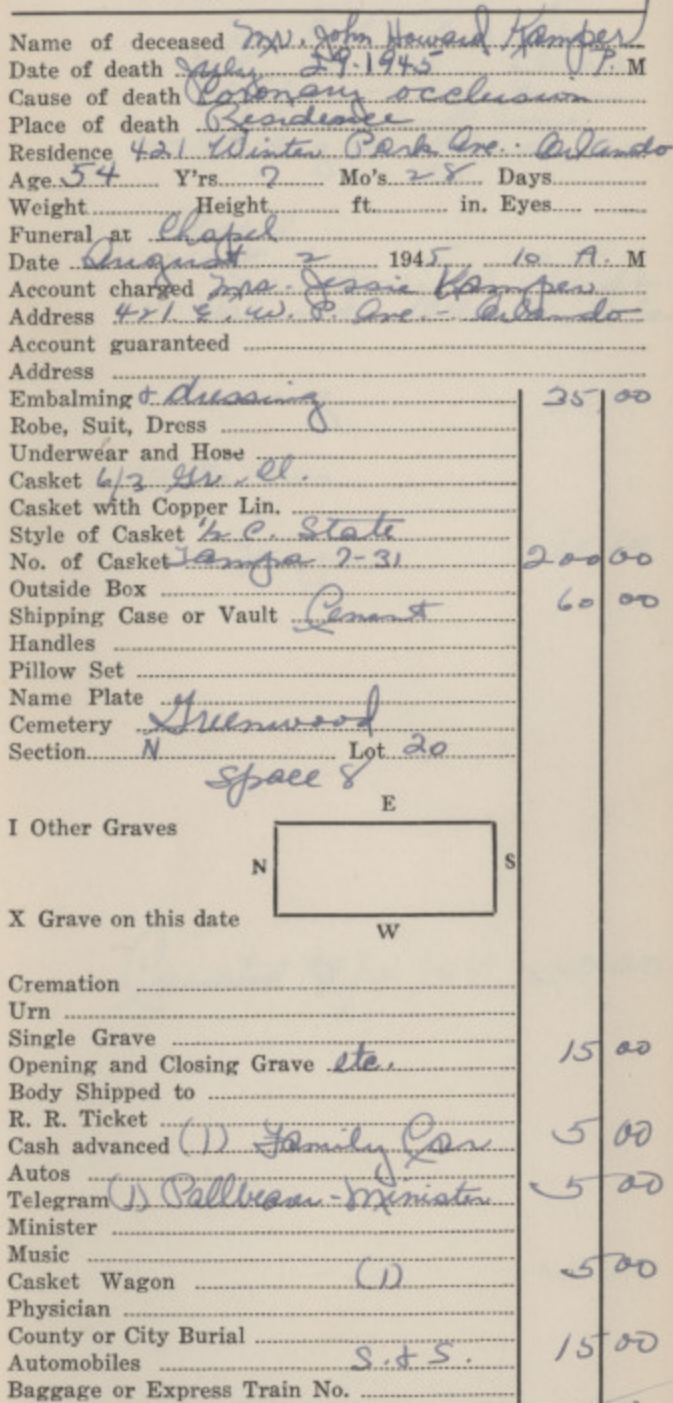 Name of deceased Mr. John Howard Kamper
Date of death July 29-1945 P. M
Cause of death Coronary occlusion
Place of death Residence
Residence 421 Winter Park Ave. Orlando
Age 54 Y'rs 7 Mo's 28 Days
Weight Height ft. in. Eyes
Funeral at Chapel
Date August 2 1945 10 A. M
Account charged Mrs. Jessie Kamper
Address 421 E. W. P. Ave. - Orlando
Account guaranteed
Address
Embalming & dressing 35 00
Robe, Suit, Dress
Underwear and Hose
Casket 6/3 Gr.
Casket with Copper Lin.
Style of Casket 1/2 C. State
No. of Casket Tampa 7-31 200 00
Outside Box
Shipping Case or Vault Cement 60 00
Handles
Pillow Set
Name Plate
Cemetery Greenwood
Section N Lot 20
Space 8
E
I Other Graves
N S
X Grave on this date
W
Cremation
Urn
Single Grave
Opening and Closing Grave etc. 15 00
Body Shipped to
R. R. Ticket
Cash advanced (1) Family Car 5 00
Autos
Telegram (1) Pallbearer - Minister 5 00
Minister
Music
Casket Wagon (1) 5 00
Physician
County or City Burial
Automobiles S. & S. 15 00
Baggage or Express Train No.